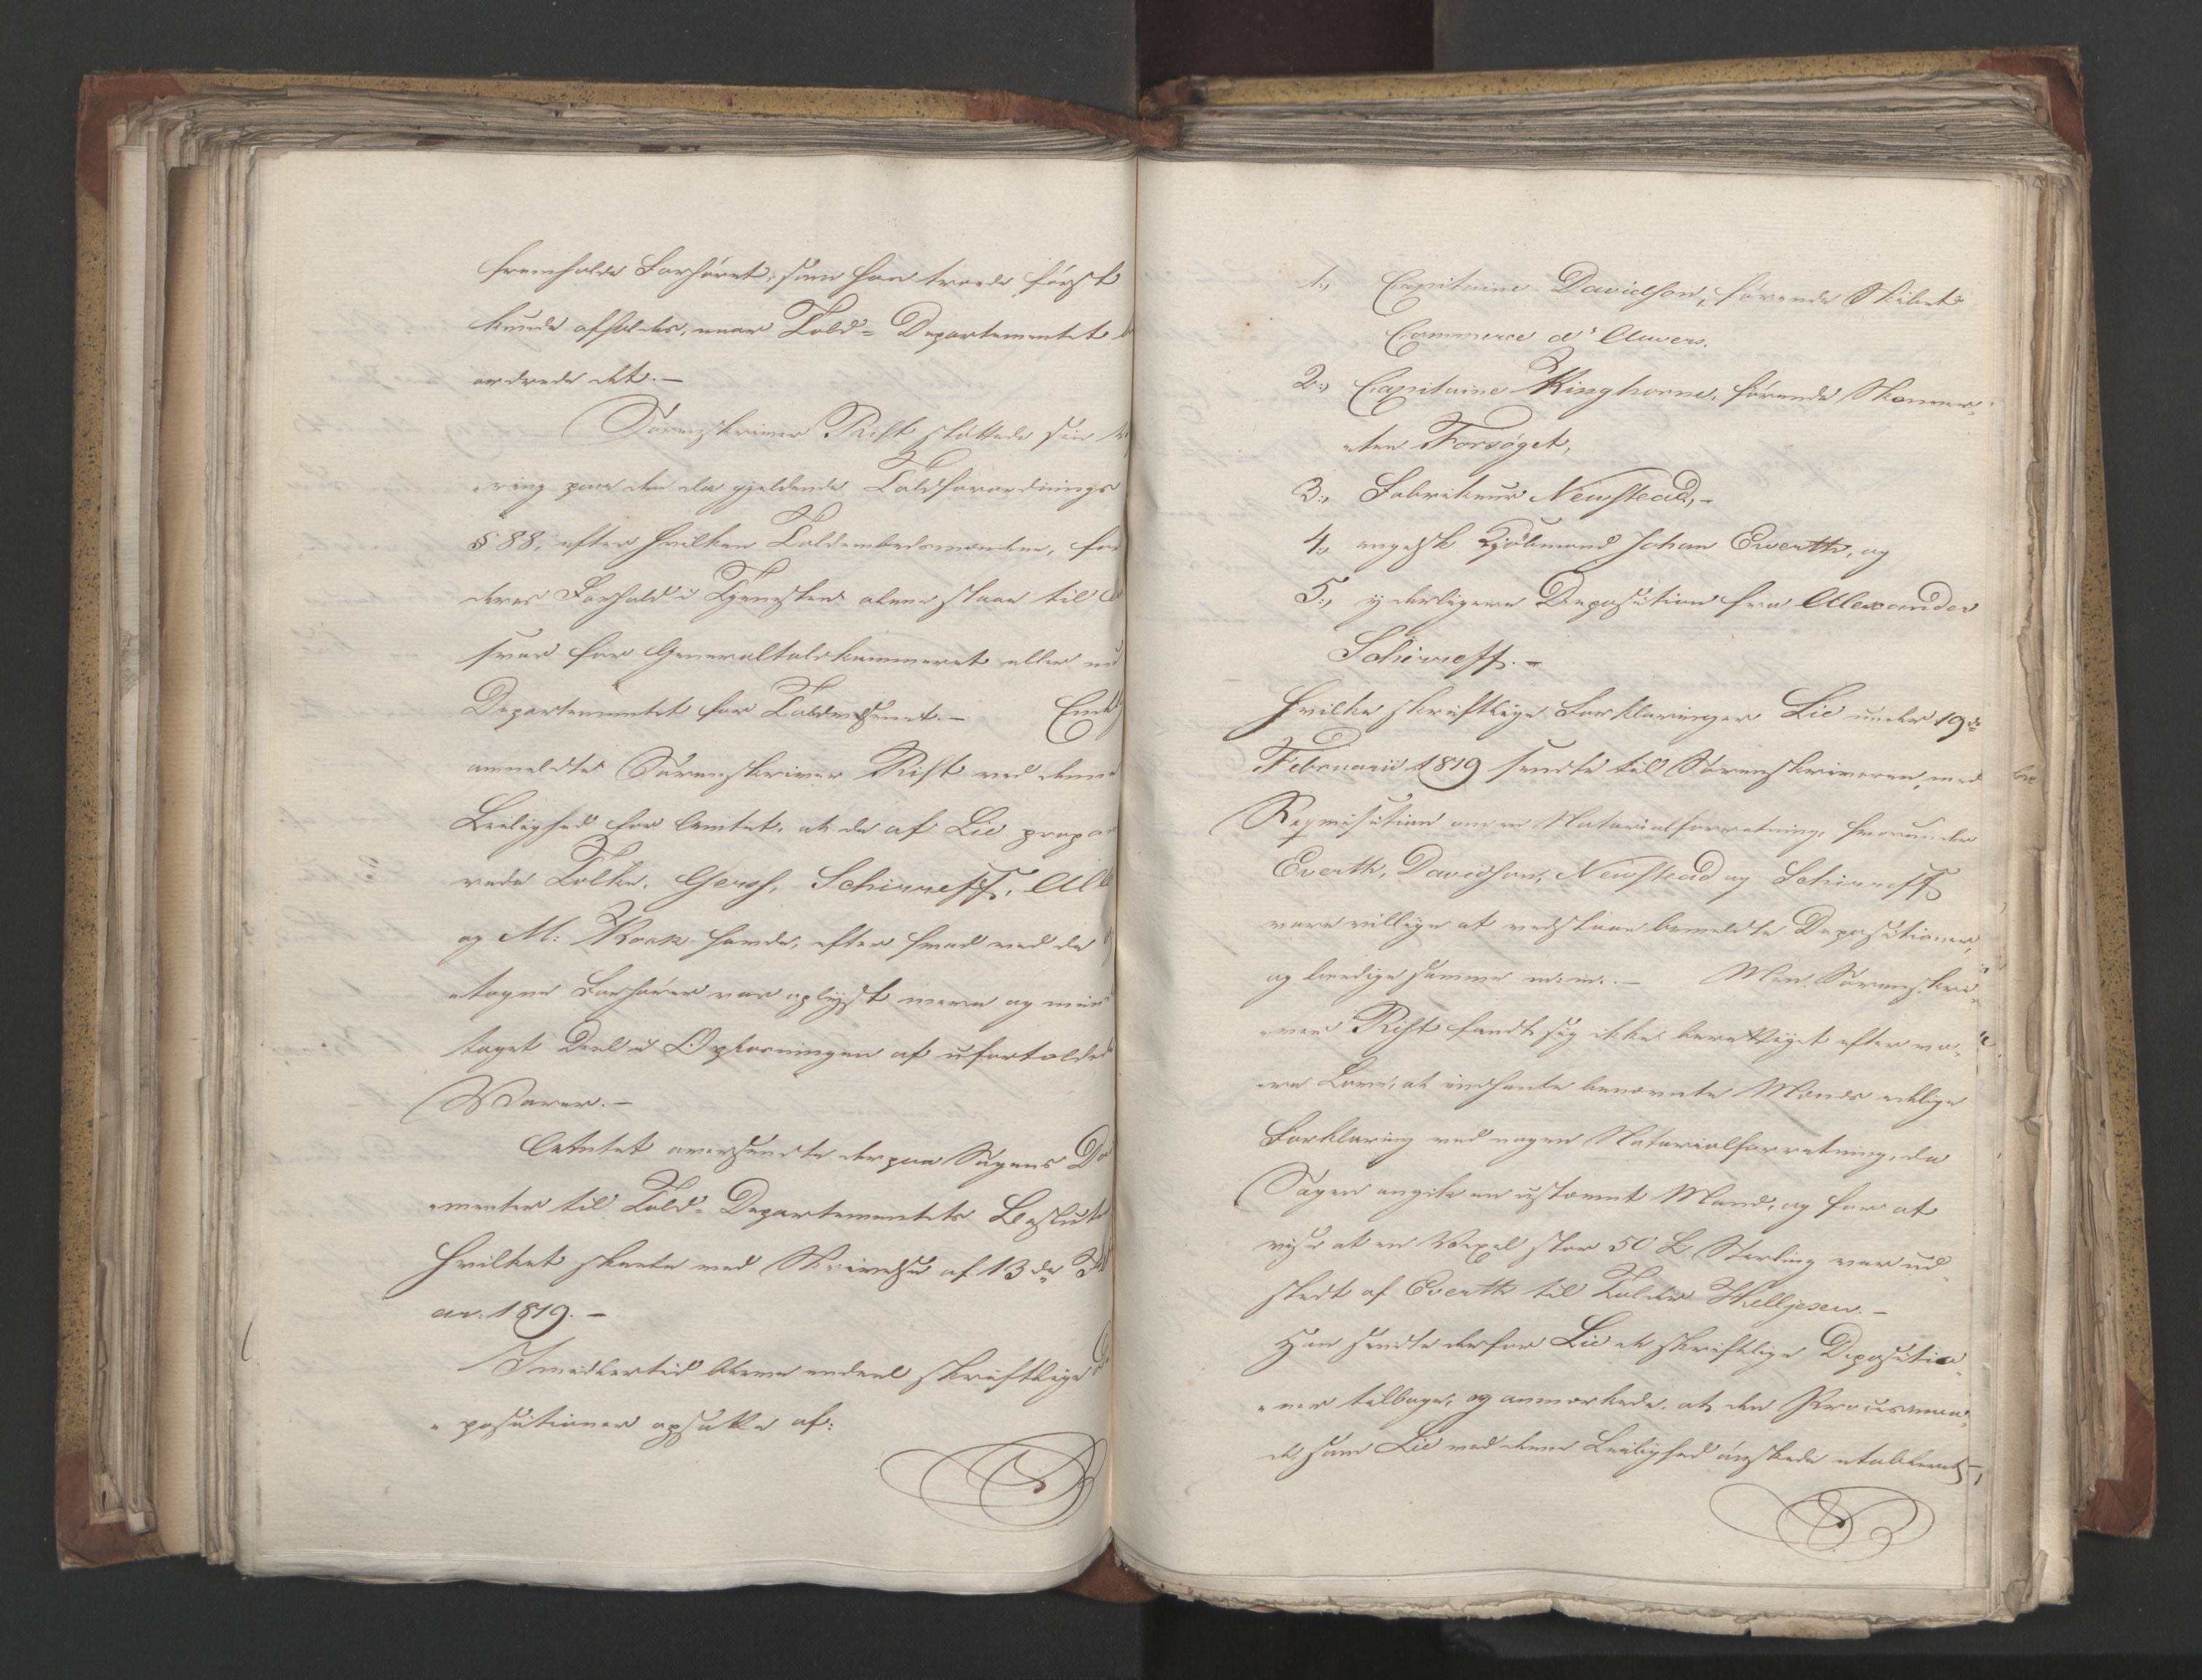 fremholde Forhøret, som han troede først
kunde afholdes, naar Told-Departementet b
ordrede det.—
Sorenskriver Rift støttede sin V
ering paa den da gjeldende Toldforordnings
§ 88, efter hvilken Toldembedsmændene, for
deres Forhold i Tjenesten alene staae til An
svar for Generaltoldkammeret eller nu
Departementet for Toldvæsenet.— End
anmeldte Sorenskriver Rift ved denne
Leilighed for Amtet, at de af Lie propo
nerede Tolke, Gersh, Schirreff, All
og M: Koch havde, efter hvad ved de
tagne Forhører var oplyst mere og mind
taget Deel i Opkøbningen af ufortoldede
Warer.—
Amtet oversendte derpaa Sagens Do
umenter til Told-Departementets Beslut
hvilket skeete med Skrivelse af 13de F
ar: 1819.—
Imidlertid bleve endeel skriftlige D
positioner opsatte af:
1, Capitaine Davidson, førende Skibet
Commerce d'Anvers.
2, Capitaine Kinghorne, førende Skonner,
ten Forsøget,
3, Fabrikeur Newstead,—
4, engelsk Kjøbmand Johan Everth, og
5, yderligere Deposition fra Alexander
Schirreff.—
Hvilke skriftlige Forklaringer Lie under 19de
Februarii 1819 sendte til Sorenskriveren, med
Reqvisition om en Notarialforretning, hvorunder
Everth, Davidson, Newstead og Schirreff
vare villige at vedstaae bemeldte Depositioner,
og beedige samme m: m:.— Men Sorenskri
veren Rift fandt sig ikke berettiget efter vo,
re Love, at indhente benævnte Mænds edelige
Forklaring ved nogen Notarialforretning, da
Sagen angik en ustævnt Mand, og for at
vise at en Vexel stor 50 £ Sterling var ud
stedt af Everth til Tolder Heltzen.—
Han sendte derfor Lie de skriftlige Depositio
ner tilbage, og anmærkede, at den Procesmaa,
de som Lie ved denne Leilighed ønskede etableret,